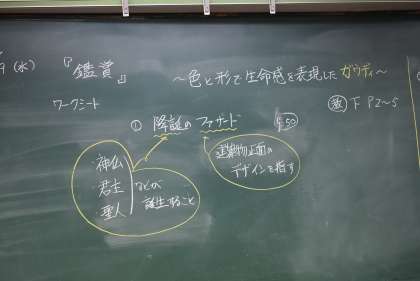 9 (水)
『鑑賞』 〜色と形で生命感を表現したガウディ〜
ワークシート
教 下 P2〜5
① 降誕のファサード P.50
・神仏
・君主
・聖人
などが
誕生すること
建築物正面の
デザインを指す